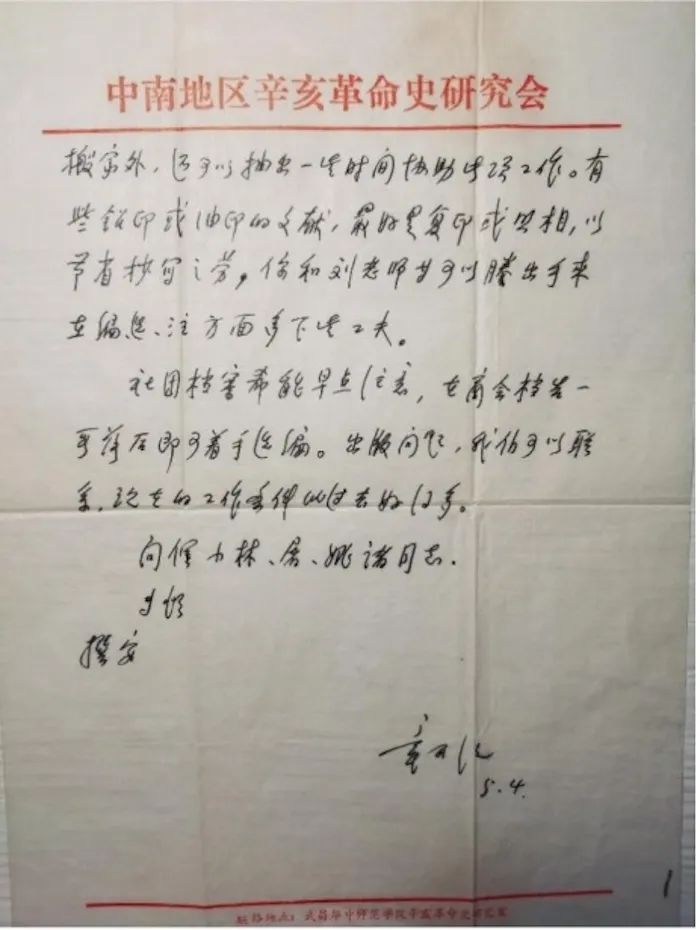 中南地区辛亥革命史研究会
搬家外，还可以抽出一些时间协助此项工作。有
些铅印或油印的文献，最好是复印或照相，以
节省抄写之劳，你和刘老师皆可以腾出手来
在编选、注方面多下些工夫。
社团档案希能早点注意，在商会档告一
段落后即可着手选编。出版问题，我们可以联
系，现在的工作条件似过去好得多。
问候小林、屠、姚诸同志．
即颂
撰安
章开沅
5.4.
联络地点：武昌华中师范学院辛亥革命史研究室